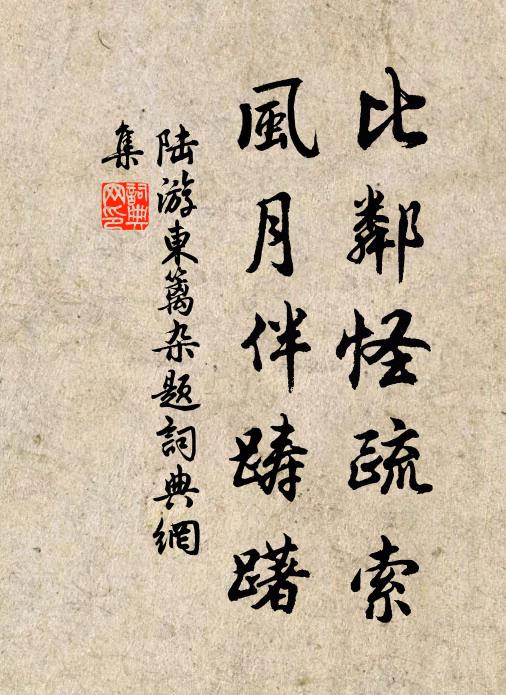 比鄰怪疏索
風月伴踌躇
陆游東籬杂题詞典網
集
詞典
网印